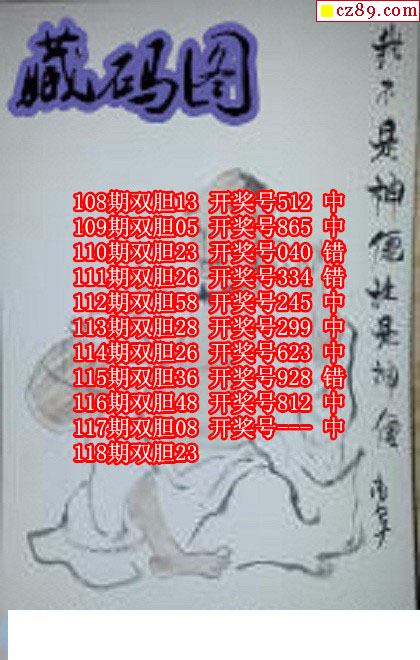 cz89.com
藏码图
我不是神仙谁是神仙
108期双胆13 开奖号512 中
109期双胆05 开奖号865 中
110期双胆23 开奖号040 错
111期双胆26 开奖号334 错
112期双胆58 开奖号245 中
113期双胆28 开奖号299 中
114期双胆26 开奖号623 中
115期双胆36 开奖号928 错
116期双胆48 开奖号812 中
117期双胆08 开奖号--- 中
118期双胆23